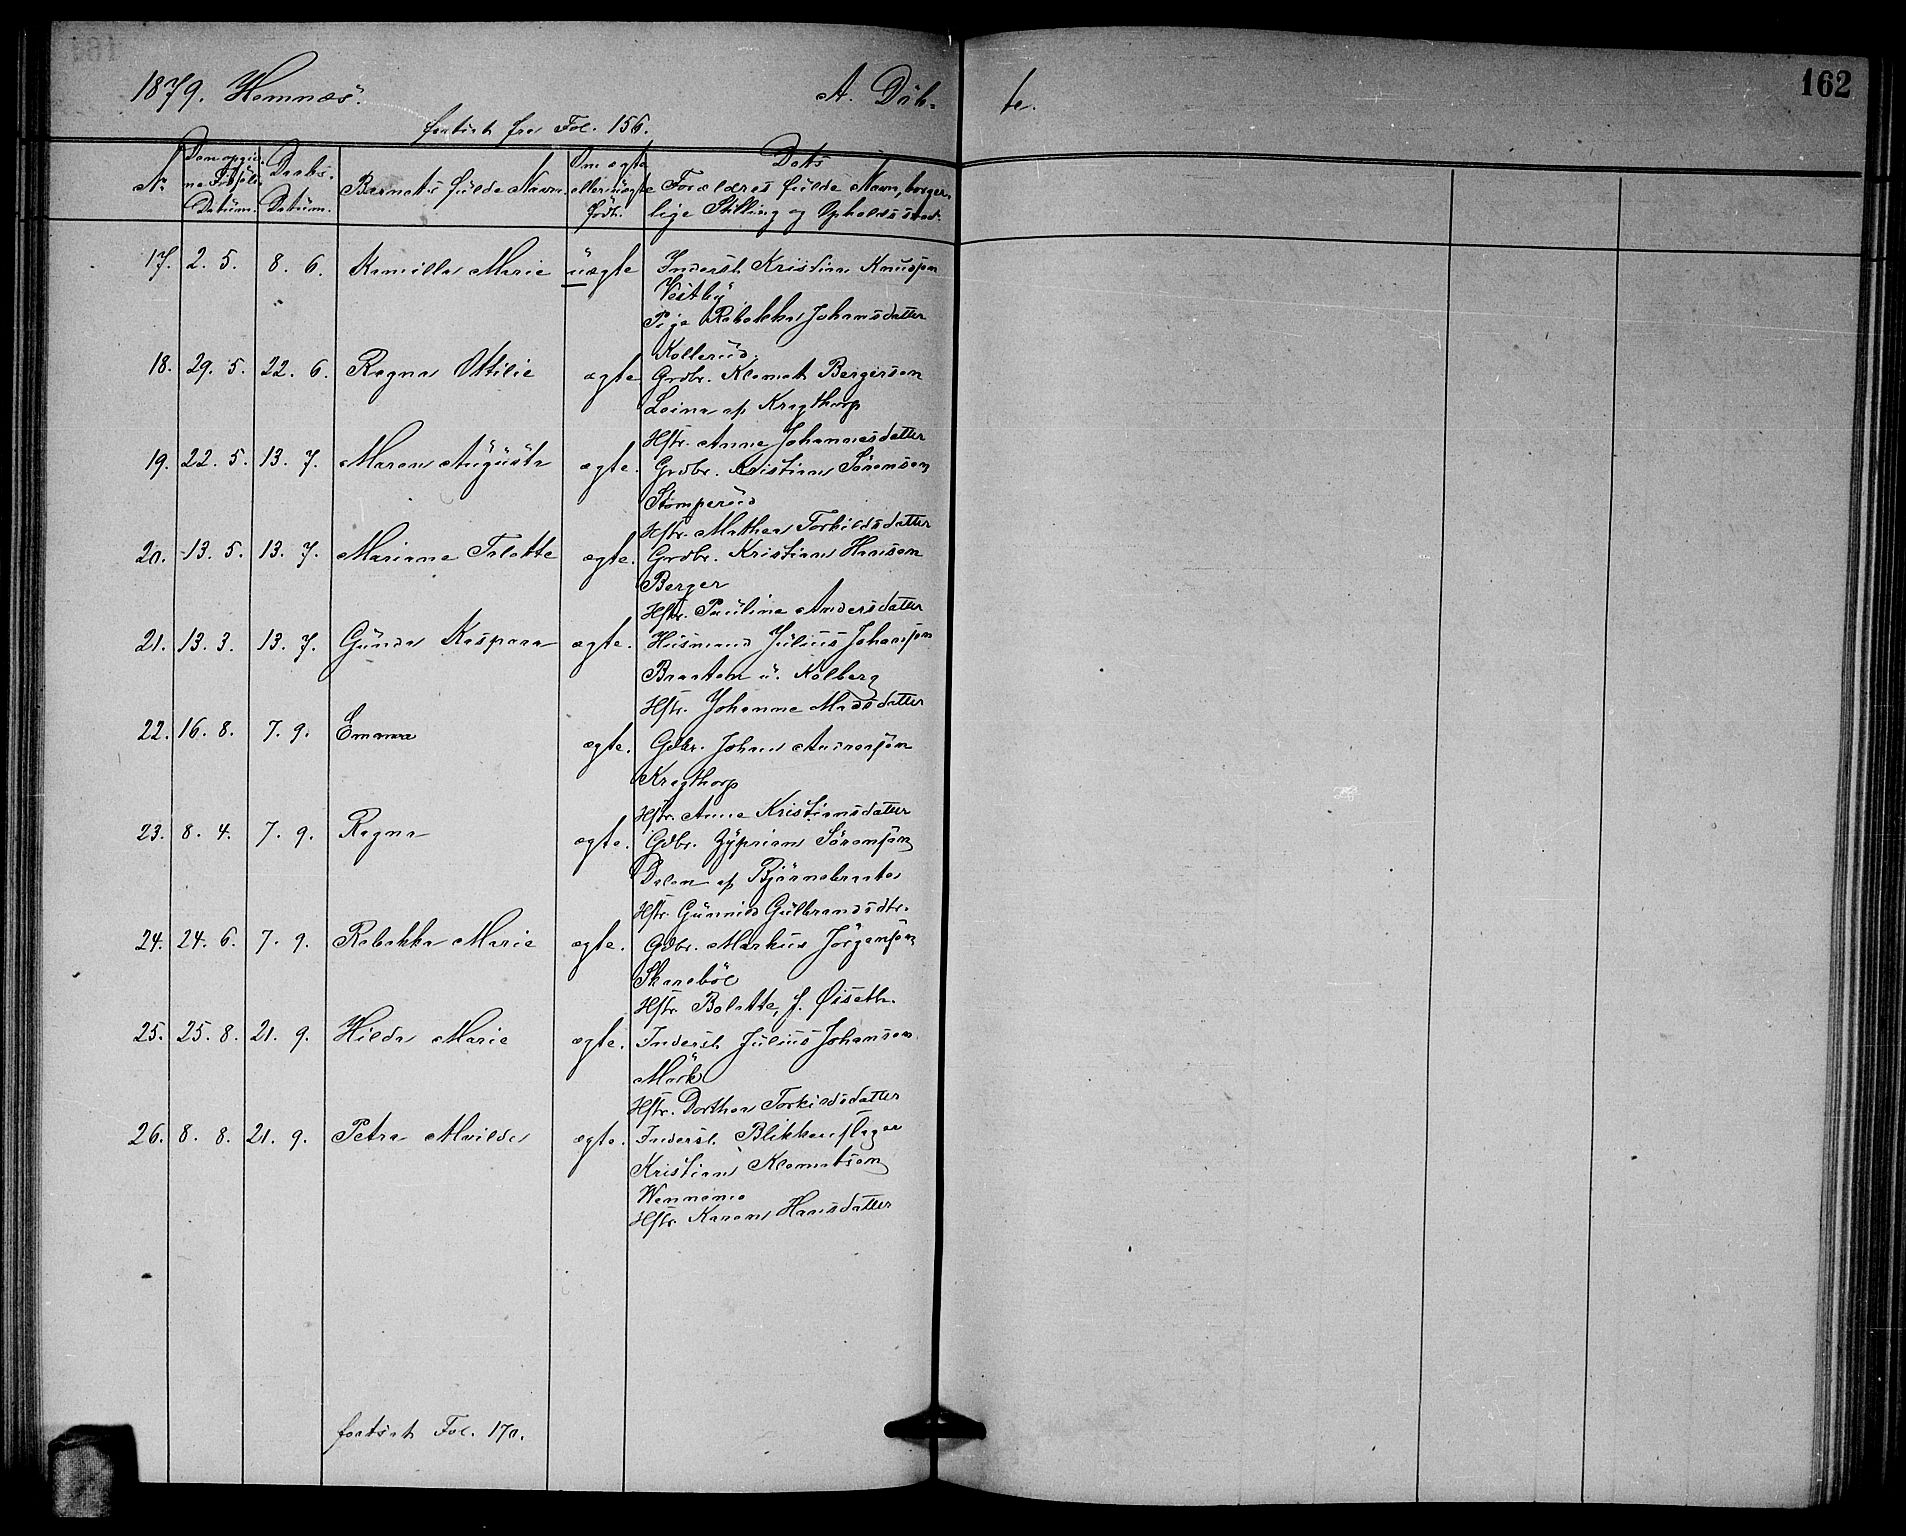 162
1879. Hemnæs.
A. Döb- te.
fortsat fra Fol. 156.
No Den opgivne Födsels Datum. Daabs-Datum. Barnets fulde Navn. Om ægte eller uægte födt. Dets Forældres fulde Navn, borgerlige Stilling og Opholdssted.
17. 2. 5. 8. 6. Kamilla Marie uægte Inderst Kristian Knudsen
Vestby
Pige Rebekka Johansdatter
Kollerud.
18. 29. 5. 22. 6. Ragna Ottilie ægte Grdbr. Klemet Bergersen
Leine af Kragthorp
Hstr. Anne Johannesdatter
19. 22. 5. 13. 7. Maren Augusta ægte. Grdbr. Kristian Sörensen
Stomperud
Hstr. Mathea Torkildsdatter
20. 13. 5. 13. 7. Mariane Talette ægte. Grdbr. Kristian Hansen
Berger
Hstr. Pauline Andersdatter
21. 13. 3. 13. 7. Gunda Kaspara ægte. Husmand Julius Johansen
Braaten u. Kolberg
Hstr. Johanne Madsdatter
22. 16. 8. 7. 9. Emma ægte. Gdbr. Johan Andersen
Kragthorp
Hstr. Anne Kristiansdatter
23. 8. 4. 7. 9. Ragna ægte. Gdbr. Zyprian Sörensen
Dalen af Bjönnebraate
Hstr. Gunnild Gulbrandsdtr.
24. 24. 6. 7. 9. Rebekka Marie ægte. Gdbr. Markus Jörgensen
Skaneböl
Hstr. Bolette, f. Öiseth.
25. 25. 8. 21. 9. Hilda Marie ægte. Inderst Julius Johansen
Mörk
Hstr. Dorthea Torkildsdatter
26. 8. 8. 21. 9. Petra Mailde ægte. Inderst Blikkenslager
Kristian Klemetsen
Hstr. Karen Hansdatter
fortsat Fol. 170.